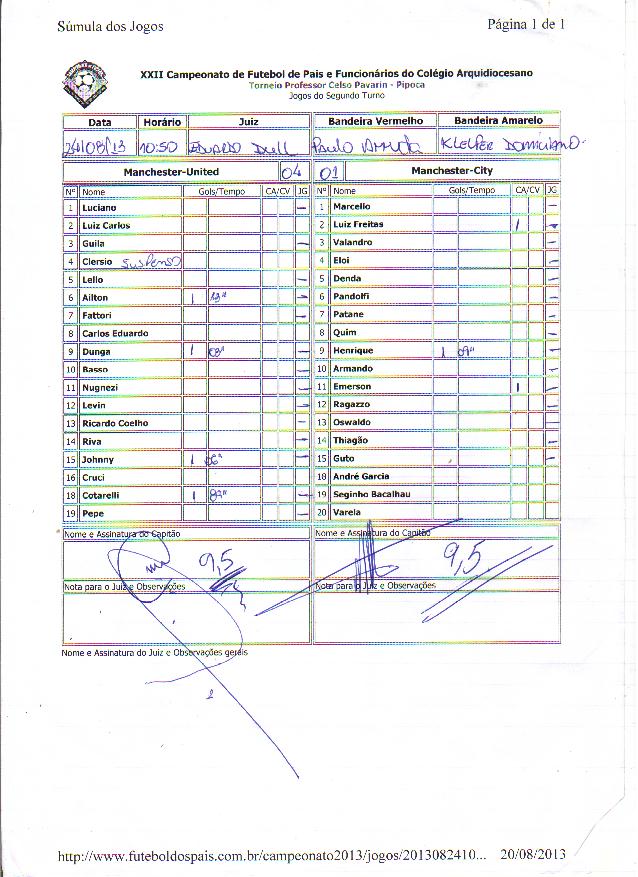 Súmula dos Jogos Página 1 de 1
XXII Campeonato de Futebol de Pais e Funcionários do Colégio Arquidiocesano
Torneio Professor Celso Pavarin - Pipoca
Jogos do Segundo Turno
Data Horário Juiz Bandeira Vermelho Bandeira Amarelo
24/08/13 10:50 EDUARDO PAULO ARRUDA KLEIFER DOMICIANO
Manchester-United 04 01 Manchester-City
Nº Nome Gols/Tempo CA/CV JG Nº Nome Gols/Tempo CA/CV JG
1 Luciano — 1 Marcello —
2 Luiz Carlos 2 Luiz Freitas 1 —
3 Guila — 3 Valandro —
4 Clersio Suspenso 4 Eloi —
5 Lello — 5 Denda —
6 Ailton 1 — 6 Pandolfi —
7 Fattori — 7 Patane —
8 Carlos Eduardo 8 Quim —
9 Dunga 1 08" — 9 Henrique 1 09" —
10 Basso — 10 Armando —
11 Nugnezi — 11 Emerson 1 —
12 Levin — 12 Ragazzo —
13 Ricardo Coelho — 13 Oswaldo —
14 Riva — 14 Thiagão —
15 Johnny 1 — 15 Guto —
16 Cruci 18 André Garcia
18 Cotarelli 1 — 19 Seginho Bacalhau —
19 Pepe — 20 Varela
Nome e Assinatura do Capitão Nome e Assinatura do Capitão
9,5 9,5
Nota para o Juiz e Observações Nota para o Juiz e Observações
Nome e Assinatura do Juiz e Observações gerais
http://www.futeboldospais.com.br/campeonato2013/jogos/2013082410... 20/08/2013